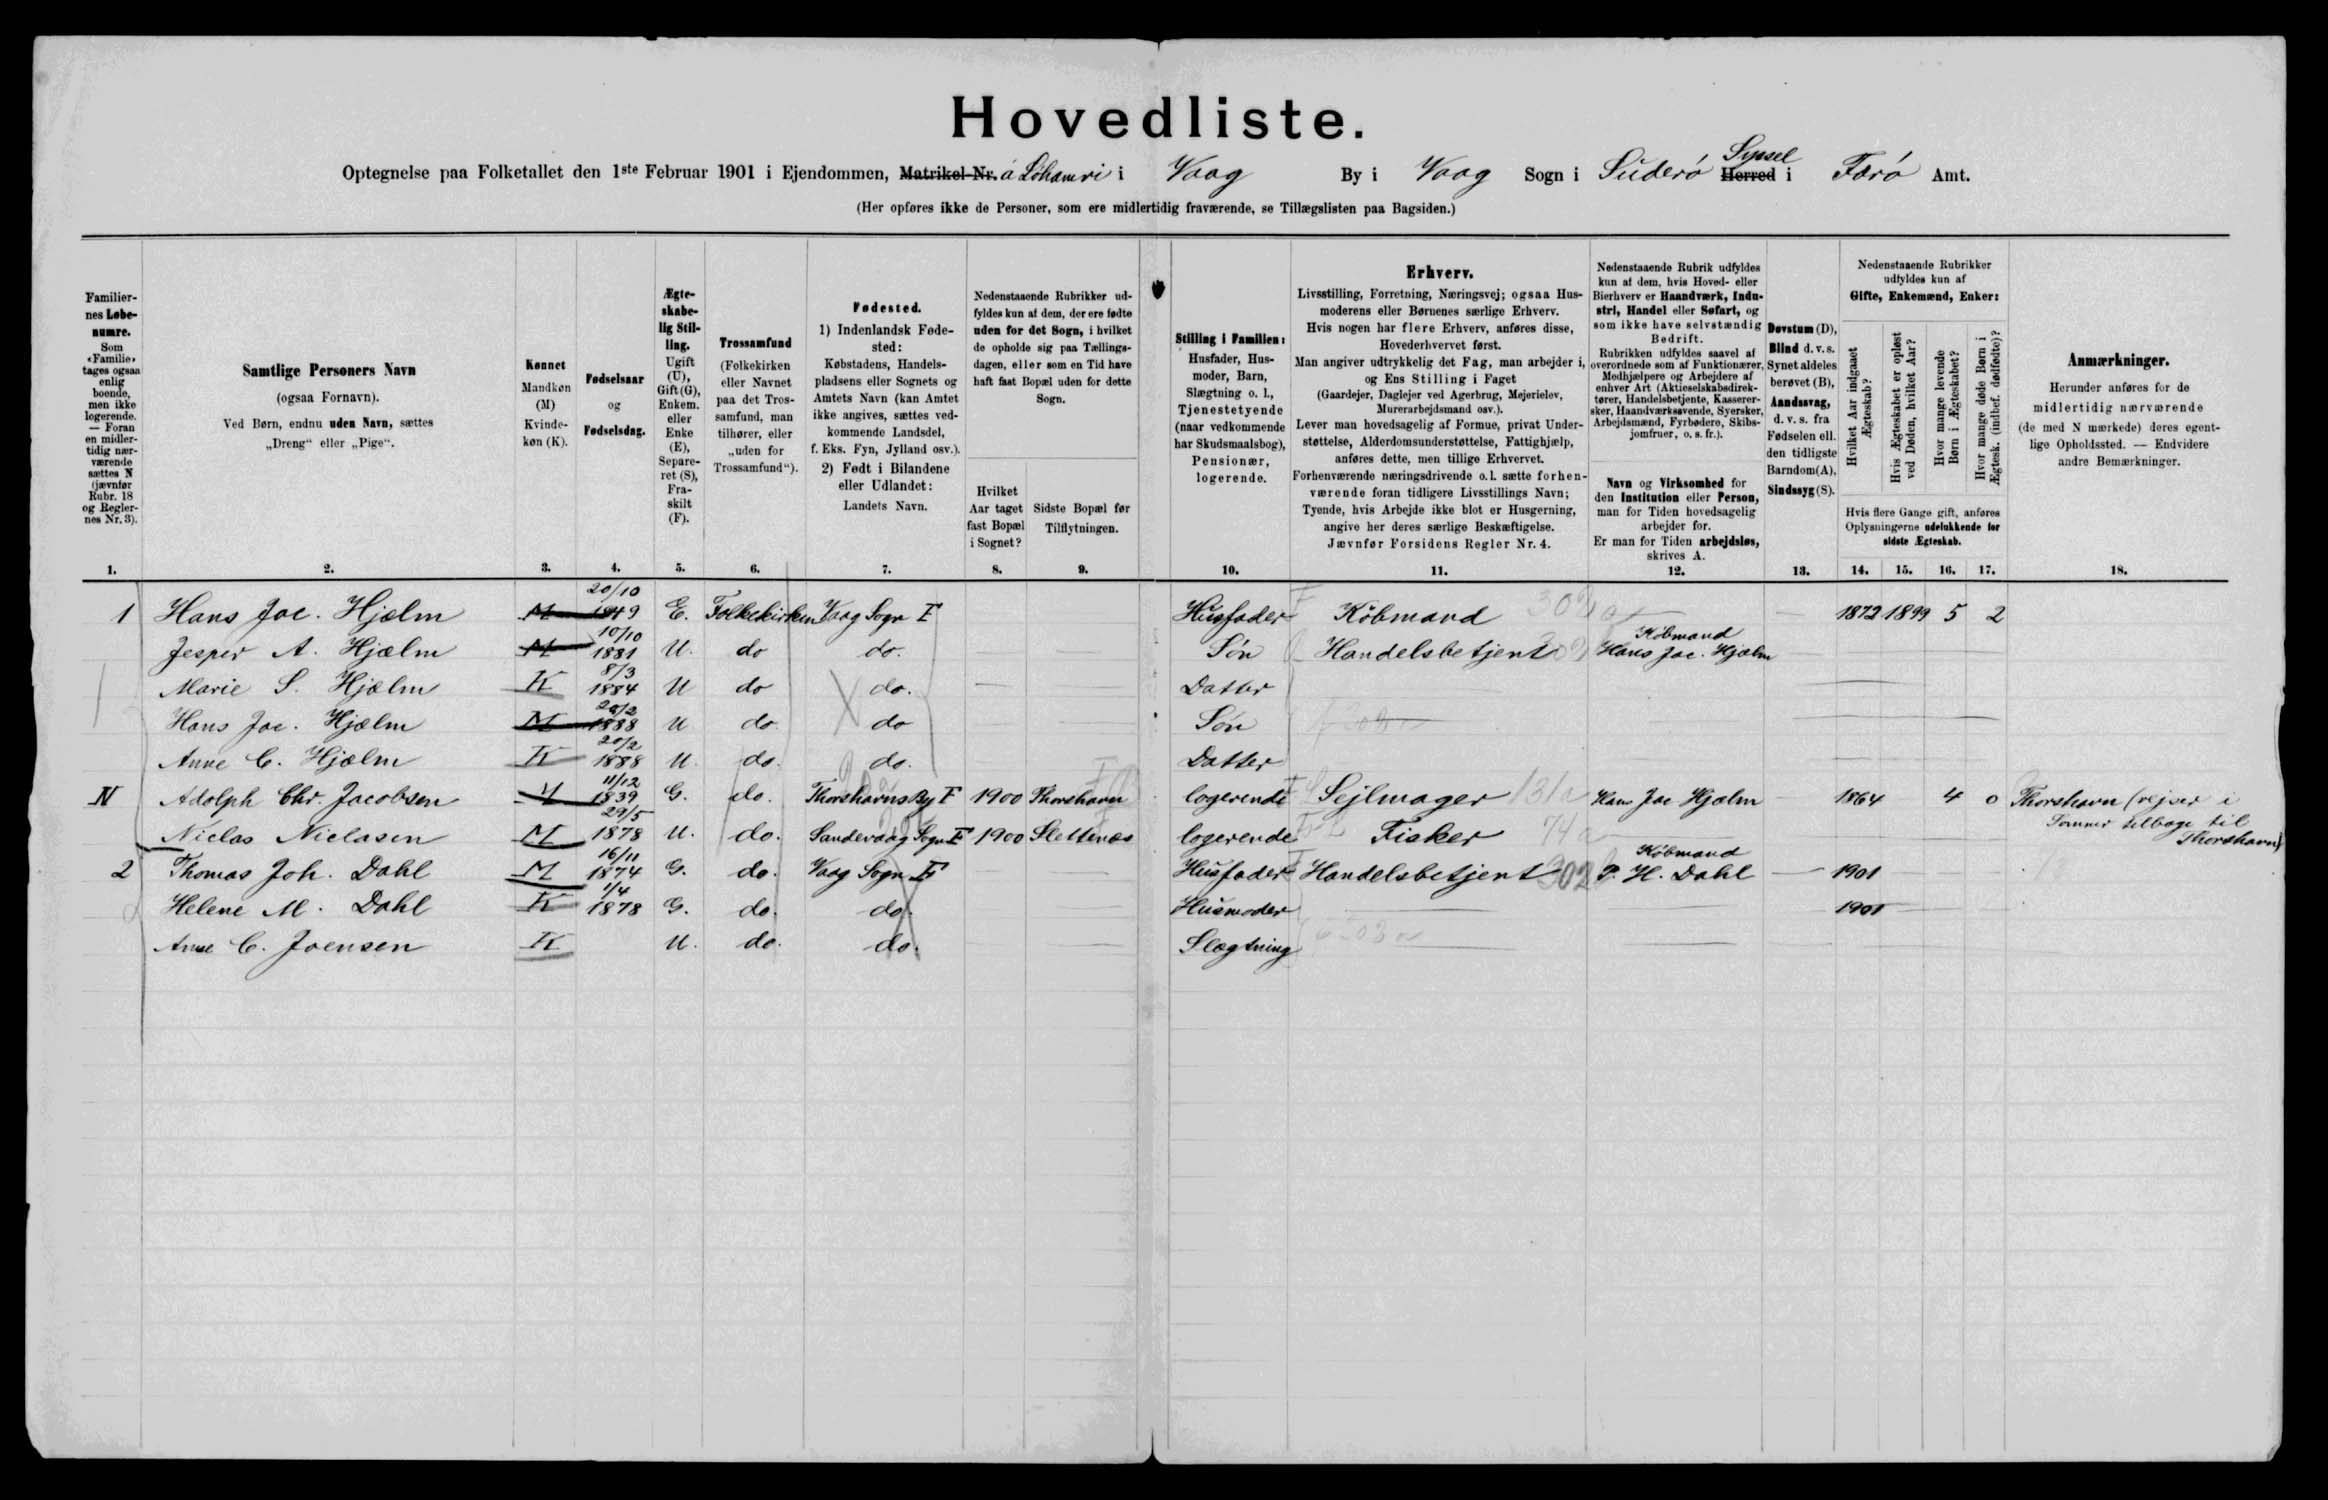 Hovedliste.
Optegnelse paa Folketallet den 1ste Februar 1901 i Ejendommen, Matrikel-Nr. á Løhamri i Vaag By i Vaag Sogn i Suderø Herred Syssel i Færø Amt.
(Her opføres ikke de Personer, som ere midlertidig fraværende, se Tillægslisten paa Bagsiden.)
Familier-
nes Løbe-
numre.
Som
«Familie»
tages ogsaa
enlig
boende,
men ikke
logerende.
— Foran
en midler-
tidig nær-
værende
sættes N
(jævnfør
Rubr. 18
og Regler-
nes Nr. 3).
1.
Samtlige Personers Navn
(ogsaa Fornavn).
Ved Børn, endnu uden Navn, sættes
„Dreng“ eller „Pige“.
2.
Kønnet
Mandkøn
(M)
Kvinde-
køn (K).
3.
Fødselsaar
og
Fødselsdag.
4.
Ægte-
skabe-
lig Stil-
ling.
Ugift
(U),
Gift (G),
Enkem.
eller
Enke
(E),
Separe-
ret (S),
Fra-
skilt
(F).
5.
Trossamfund
(Folkekirken
eller Navnet
paa det Tros-
samfund, man
tilhører, eller
„uden for
Trossamfund“).
6.
Fødested.
1) Indenlandsk Føde-
sted:
Købstadens, Handels-
pladsens eller Sognets og
Amtets Navn (kan Amtet
ikke angives, sættes ved-
kommende Landsdel,
f. Eks. Fyn, Jylland osv.).
2) Født i Bilandene
eller Udlandet:
Landets Navn.
7.
Nedenstaaende Rubrikker ud-
fyldes kun af dem, der ere fødte
uden for det Sogn, i hvilket
de opholde sig paa Tællings-
dagen, eller som en Tid have
haft fast Bopæl uden for dette
Sogn.
Hvilket
Aar taget
fast Bopæl
i Sognet?
8.
Sidste Bopæl før
Tilflytningen.
9.
Stilling i Familien:
Husfader, Hus-
moder, Barn,
Slægtning o. l.,
Tjenestetyende
(naar vedkommende
har Skudsmaalsbog),
Pensionær,
logerende.
10.
Erhverv.
Livsstilling, Forretning, Næringsvej; ogsaa Hus-
moderens eller Børnenes særlige Erhverv.
Hvis nogen har flere Erhverv, anføres disse,
Hovederhvervet først.
Man angiver udtrykkelig det Fag, man arbejder i,
og Ens Stilling i Faget
(Gaardejer, Daglejer ved Agerbrug, Mejerielev,
Murerarbejdsmand osv.).
Lever man hovedsagelig af Formue, privat Under-
støttelse, Alderdomsunderstøttelse, Fattighjælp,
anføres dette, men tillige Erhvervet.
Forhenværende næringsdrivende o. l. sætte forhen-
værende foran tidligere Livsstillings Navn;
Tyende, hvis Arbejde ikke blot er Husgerning,
angive her deres særlige Beskæftigelse.
Jævnfør Forsidens Regler Nr. 4.
11.
Nedenstaaende Rubrik udfyldes
kun af dem, hvis Hoved- eller
Bierhverv er Haandværk, Indu-
stri, Handel eller Søfart, og
som ikke have selvstændig
Bedrift.
Rubrikken udfyldes saavel af
overordnede som af Funktionærer,
Medhjælpere og Arbejdere af
enhver Art (Aktieselskabsdirek-
tører, Handelsbetjente, Kasserer-
sker, Haandværkssvende, Syersker,
Arbejdsmænd, Fyrbødere, Skibs-
jomfruer, o. s. fr.).
Navn og Virksomhed for
den Institution eller Person,
man for Tiden hovedsagelig
arbejder for.
Er man for Tiden arbejdsløs,
skrives A.
12.
Døvstum (D),
Blind d. v. s.
Synet aldeles
berøvet (B),
Aandssvag,
d. v. s. fra
Fødselen ell.
den tidligste
Barndom (A),
Sindssyg (S).
13.
Nedenstaaende Rubrikker
udfyldes kun af
Gifte, Enkemænd, Enker:
Hvilket Aar indgaaet
Ægteskab?
Hvis Ægteskabet er opløst
ved Døden, hvilket Aar?
Hvor mange levende
Børn i Ægteskabet?
Hvor mange døde Børn i
Ægtesk. (indbef. dødfødte)?
Hvis flere Gange gift, anføres
Oplysningerne udelukkende for
sidste Ægteskab.
14. 15. 16. 17.
Anmærkninger.
Herunder anføres for de
midlertidig nærværende
(de med N mærkede) deres egent-
lige Opholdssted. — Endvidere
andre Bemærkninger.
18.
1 Hans Jac. Hjælm M 20/10 1849 E. Folkekirken Vaag Sogn F Husfader Købmand 302 a 1872 1899 5 2
Jesper A. Hjælm M 10/10 1881 U. do do. Søn Handelsbetjent 302 Købmand Hans Jac. Hjælm
Marie S. Hjælm K 8/3 1884 U do do. Datter
Hans Jac. Hjælm M 20/2 1888 U do. do Søn
Anne C. Hjælm K 20/2 1888 U. do. do. Datter
N Adolph Chr. Jacobsen M 11/12 1839 G. do. Thorshavns By F 1900 Thorshavn logerende Sejlmager 131a Hans Jac Hjælm 1864 4 0 Thorshavn (rejser i
Sommer tilbage til
Thorshavn)
Niclas Niclasen M 29/5 1878 U. do. Sandevaag Sogn F 1900 Slettenæs logerende Fisker 74a
2 Thomas Joh. Dahl M 16/11 1874 G. do. Vaag Sogn F Husfader Handelsbetjent 302 Købmand P. H. Dahl 1901
Helene M. Dahl K 1/4 1878 G. do. do. Husmoder 1901
Anne C. Joensen K U. do. do. Slægtning